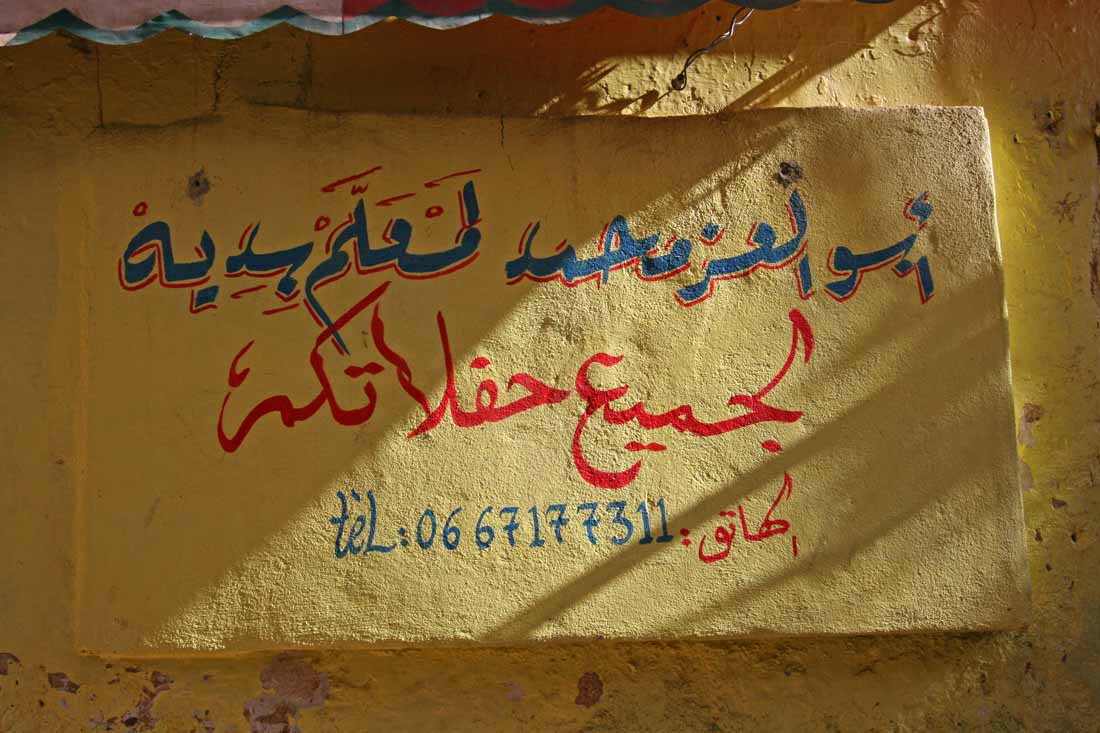 أبو العز محمد لمْعلّمْ بِديةْ
لجميع حفلاتكم
الهاتف : 0667177311 : tèL